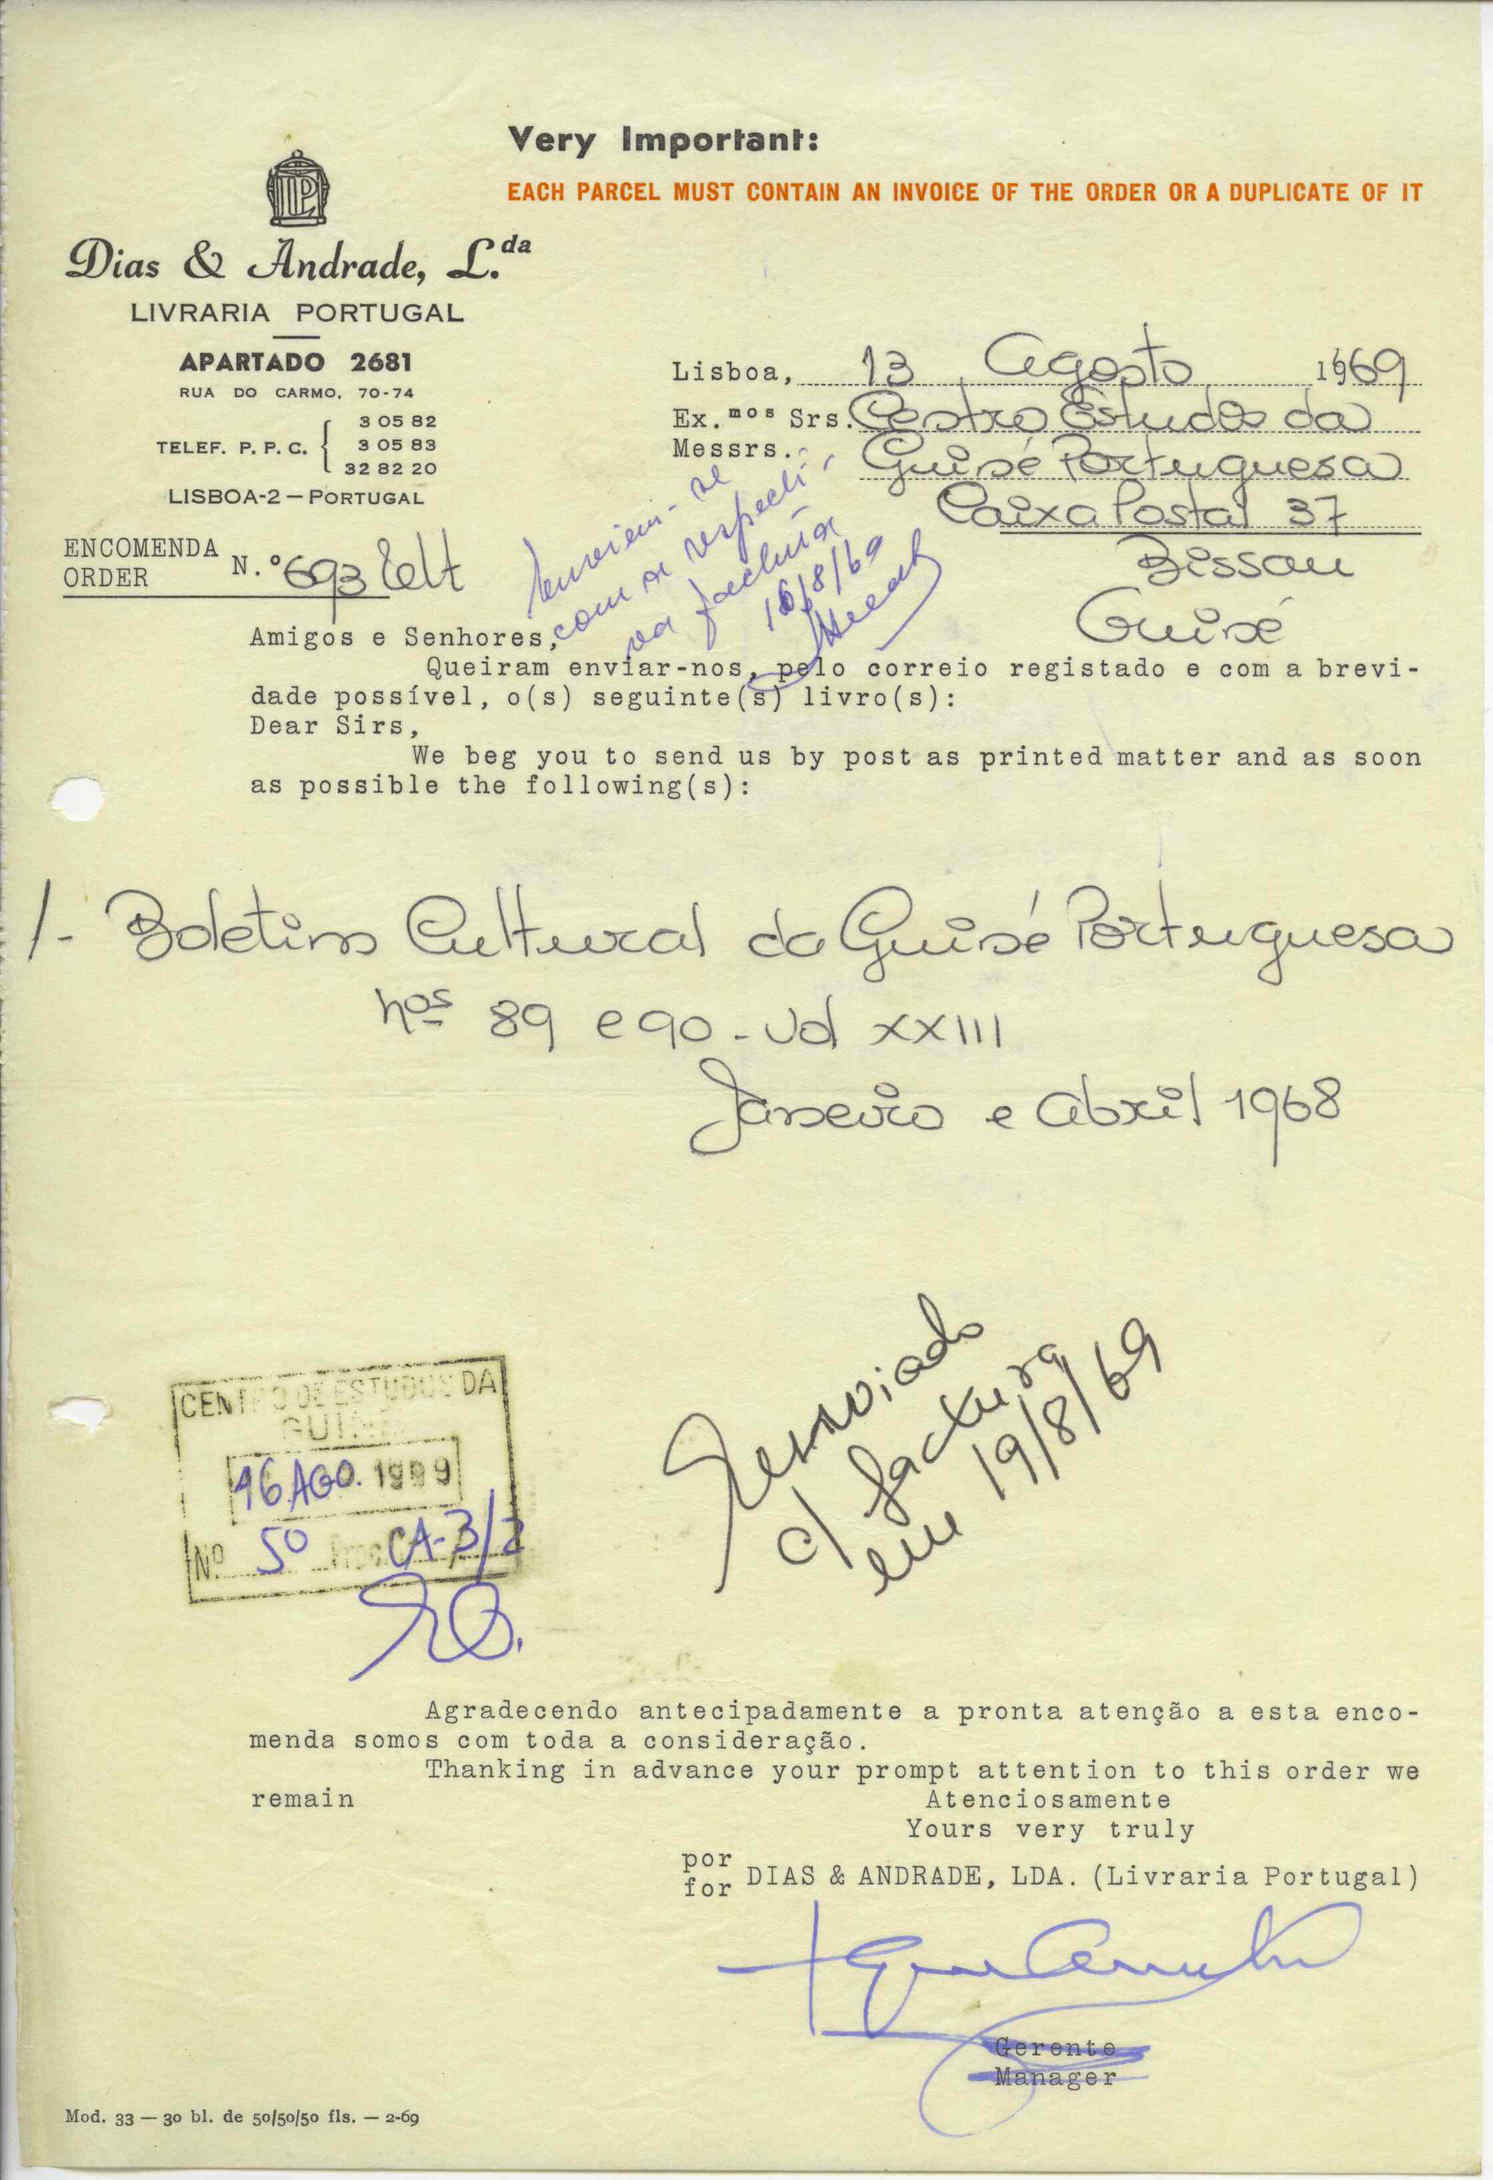 Very Important:
EACH PARCEL MUST CONTAIN AN INVOICE OF THE ORDER OR A DUPLICATE OF IT
Dias & Andrade, L.da
LIVRARIA PORTUGAL
APARTADO 2681
RUA DO CARMO, 70-74
TELEF. P. P. C. { 3 05 82
3 05 83
32 82 20
LISBOA-2 — PORTUGAL
Lisboa, 13 Agosto 1969
Ex.mos Srs. Centro Estudos da
Messrs. Guiné Portuguesa
Caixa Postal 37
Bissau
Guiné
ENCOMENDA
ORDER N.º 693
Enviem-se
com a respecti-
va factura
16/8/69
Amigos e Senhores,
Queiram enviar-nos, pelo correio registado e com a brevi-
dade possível, o(s) seguinte(s) livro(s):
Dear Sirs,
We beg you to send us by post as printed matter and as soon
as possible the following(s):
1- Boletim Cultural da Guiné Portuguesa
nos 89 e 90 - Vol XXIII
Janeiro e Abril 1968
CENTRO DE ESTUDOS DA
GUINÉ
16 AGO. 1999
Nº 50 Proc CA-3/2
Enviado
c/ factura
em 19/8/69
Agradecendo antecipadamente a pronta atenção a esta enco-
menda somos com toda a consideração.
Thanking in advance your prompt attention to this order we
remain
Atenciosamente
Yours very truly
por
for DIAS & ANDRADE, LDA. (Livraria Portugal)
Gerente
Manager
Mod. 33 — 30 bl. de 50/50/50 fls. — 2-69